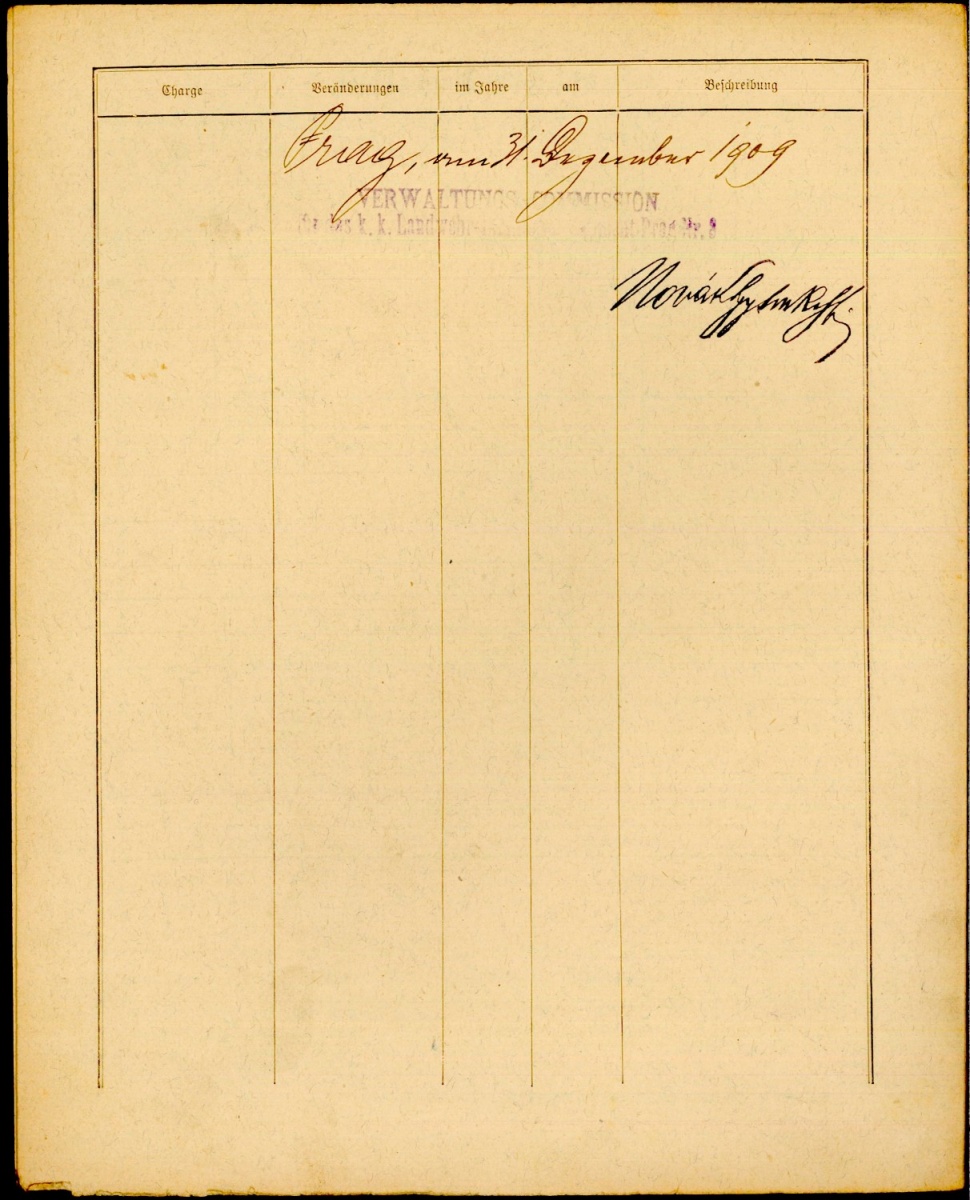 Charge Veränderungen im Jahre am Beschreibung
Prag, am 31. Dezember 1909
VERWALTUNGS-COMMISSION
für das k. k. Landwehr- Prag Nr. 8
Novák